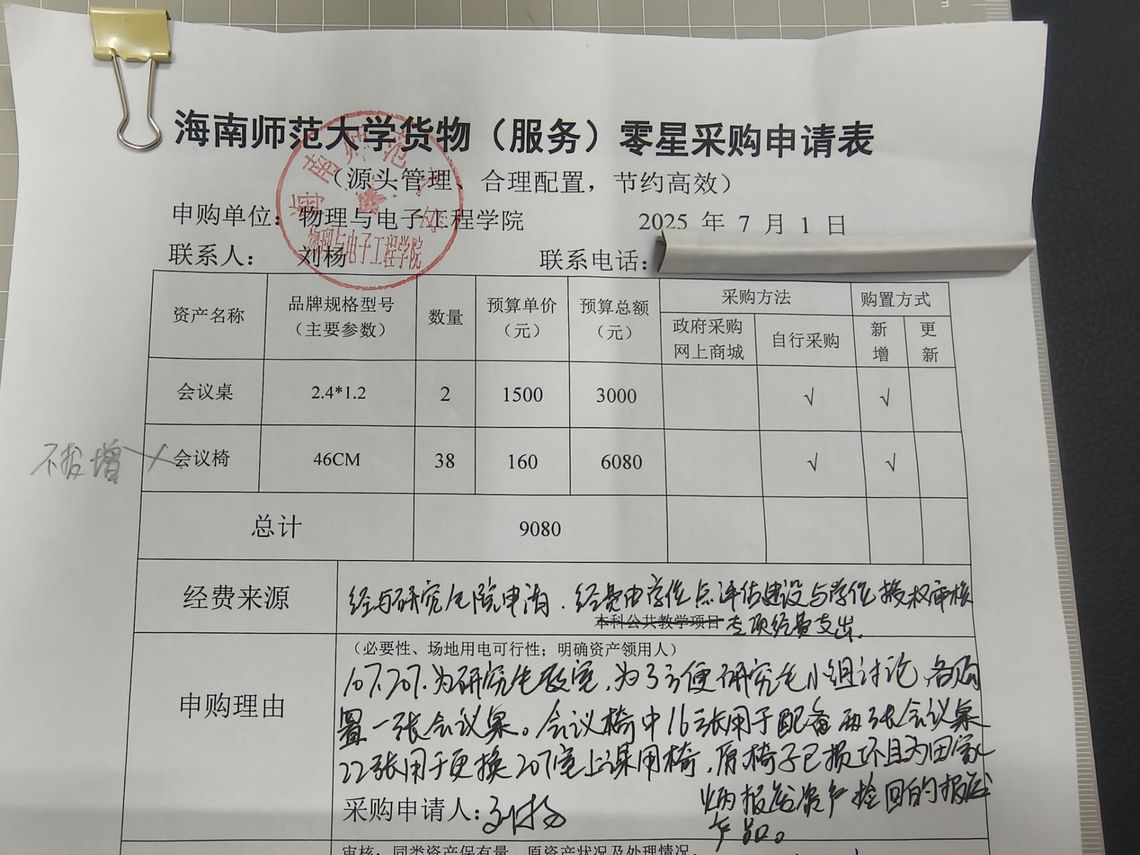 海南师范大学货物（服务）零星采购申请表
（源头管理、合理配置，节约高效）
申购单位：物理与电子工程学院 2025 年 7 月 1 日
联系人： 刘杨 联系电话：
海南师范大学
物理与电子工程学院
资产名称 品牌规格型号（主要参数） 数量 预算单价（元） 预算总额（元） 采购方法 购置方式
政府采购网上商城 自行采购 新增 更新
会议桌 2.4*1.2 2 1500 3000 √ √
不 增 会议椅 46CM 38 160 6080 √ √
总计 9080
经费来源 经与研究生院申请，经费由学位点评估建设与学位授权审核
本科公共教学项目 专项经费支出。
（必要性、场地用电可行性；明确资产领用人）
107.207.为研究生教室，为了方便研究生小组讨论，各购
申购理由 置一张会议桌。会议椅中16张用于配备两张会议桌
22张用于更换207室上课用椅，原椅子已损坏且为田家
炳报废资产捡回的报废
产品。
采购申请人：刘杨
审核：同类资产保有量、原资产状况及处理情况，